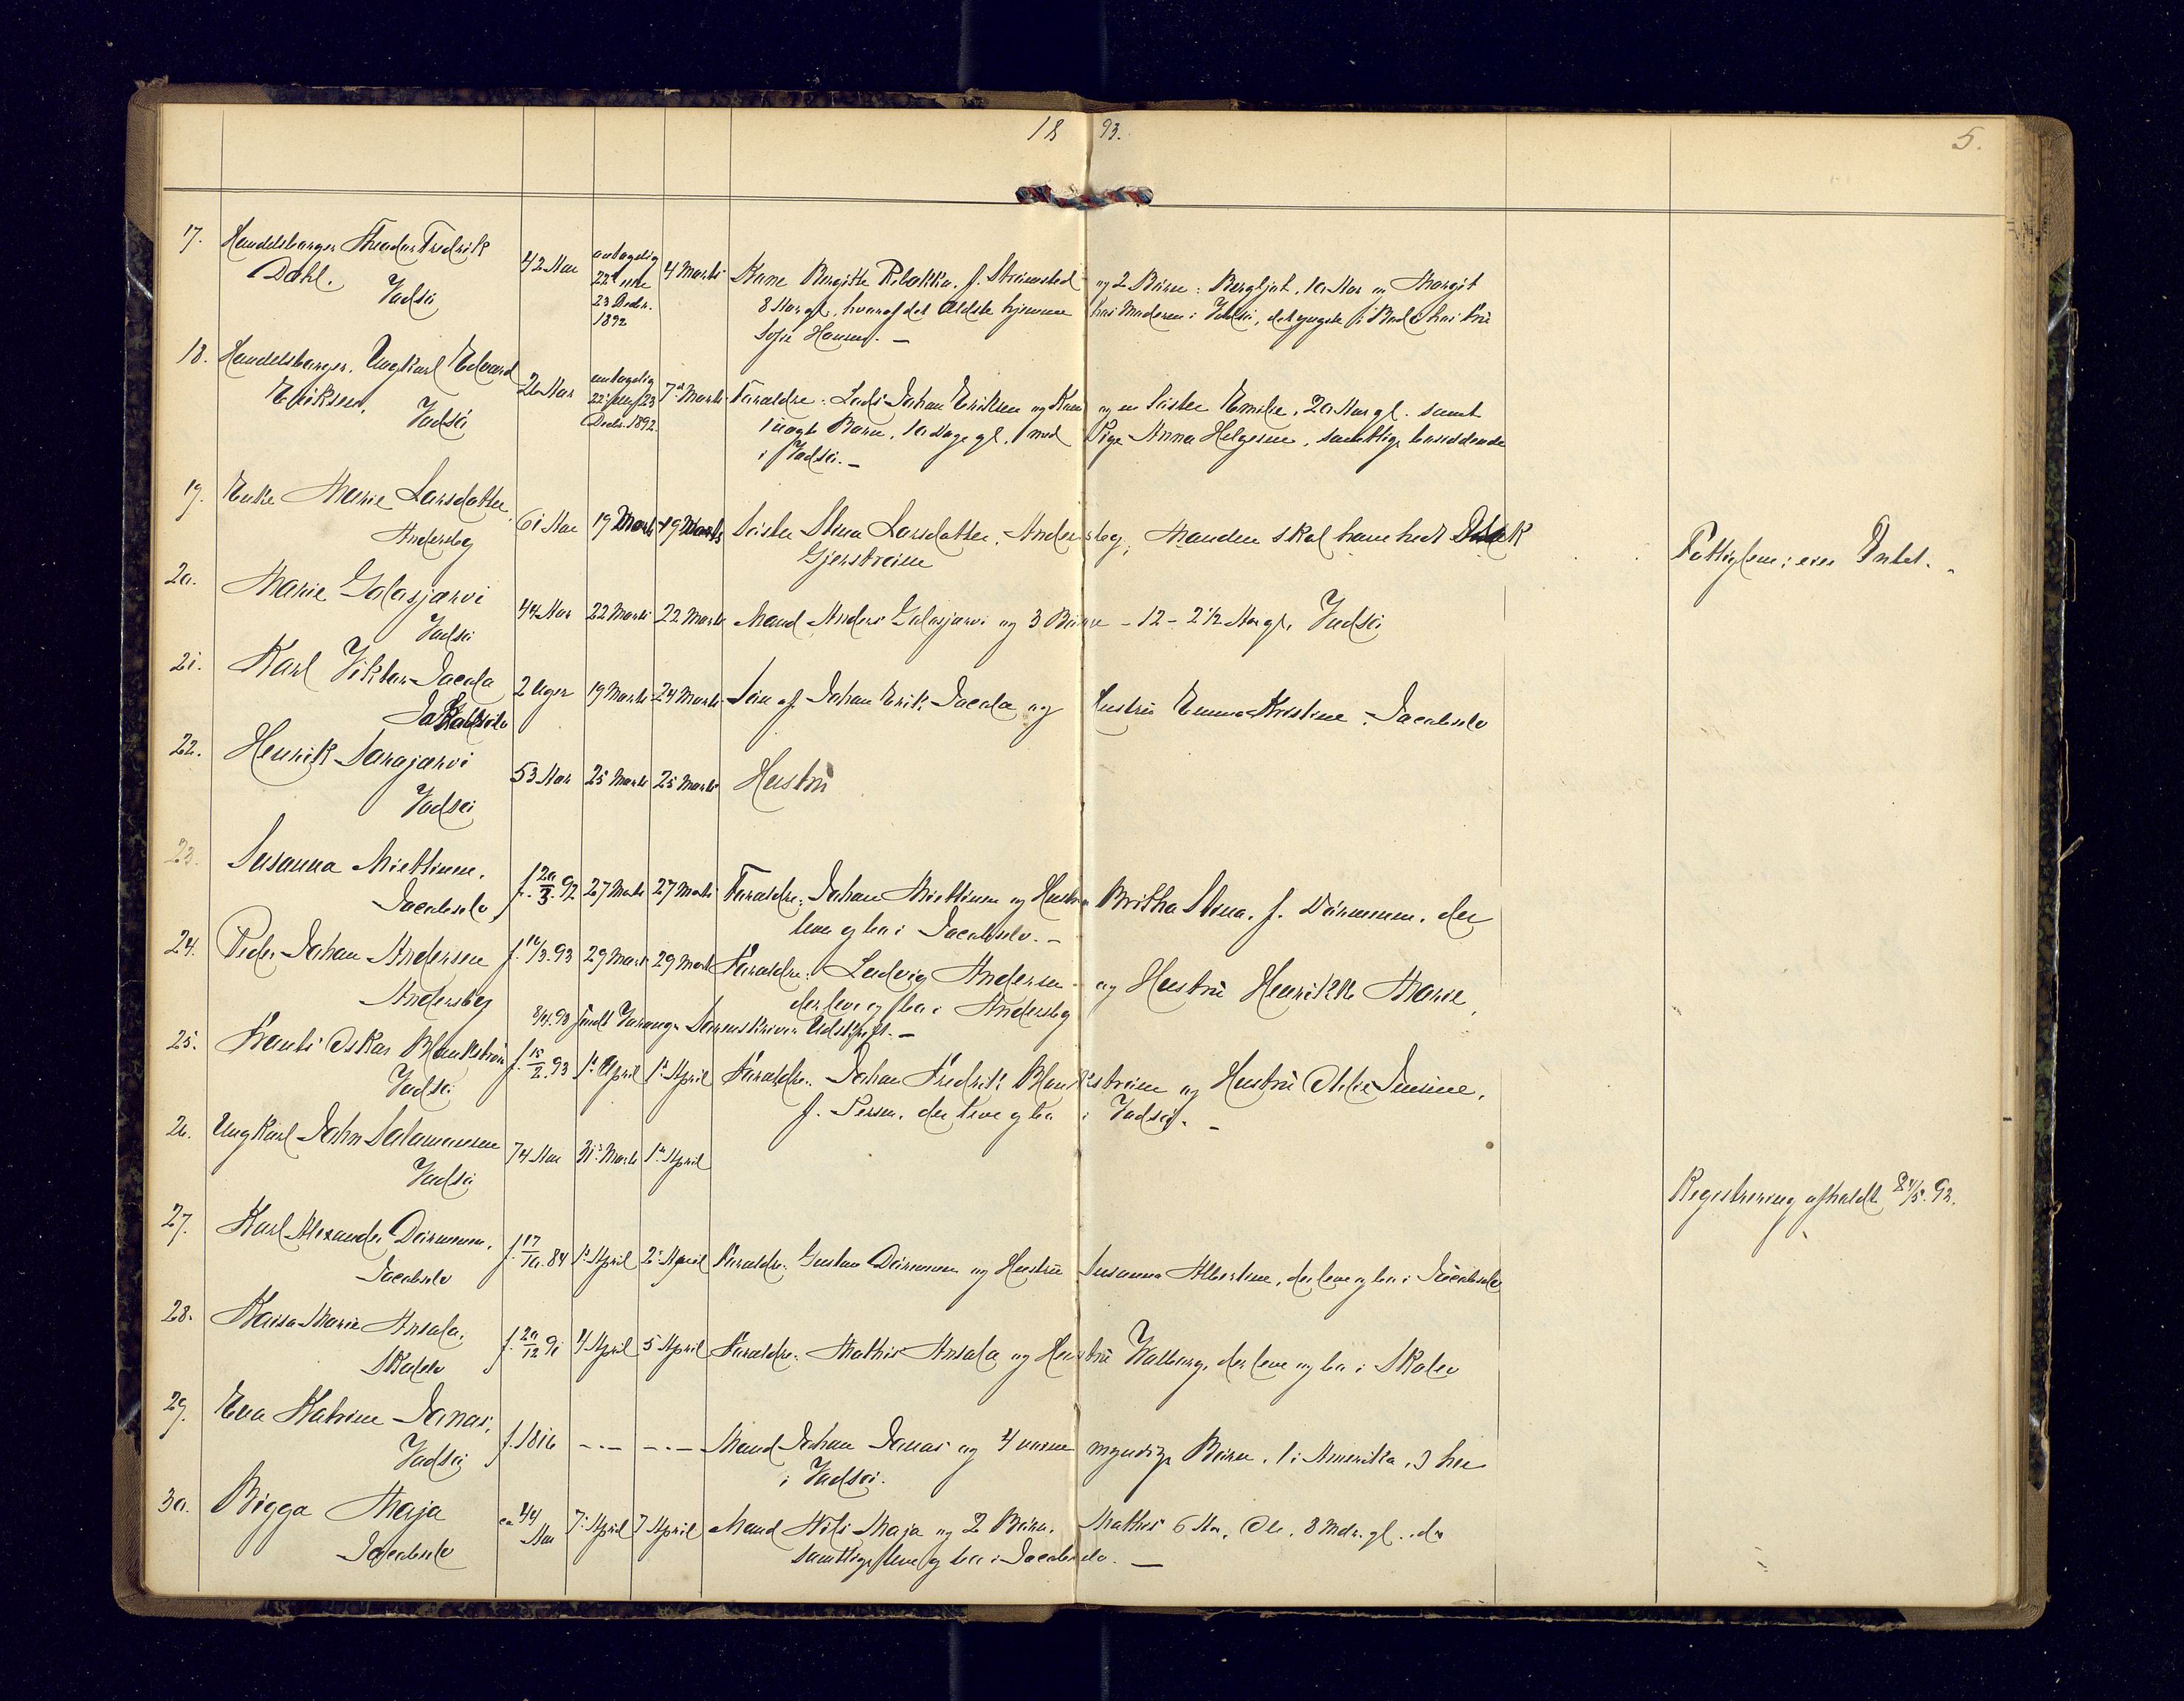 18 93.
5.
17. Handelsborger Theodor Fredrik
Dahl.
Vadsö
42 Aar
antagelig
22 eller
23 Decbr.
1892
4 Marts
Kone Birgitte Rebekka, f. Strömsted og 2 Börn: Bergljot, 10 Aar og Margit
8 Aar gl., hvoraf det Ældste hjemme hos Moderen i Vadsö, det yngste i Bodö hos Fru
Sofie Hansen. -
18. Handelsborger, Ungkarl Edvard
Eriksen,
Vadsö
26 Aar
antagelig
22 eller 23
Decbr. 1892.
7de Marts
Forældre: Lods Johan Eriksen og Kone og en Söster Emilie, 20 Aar gl. samt
1 uægte Barn, 10 Dage gl. med Pige Anna Helgesen, samtlige boesiddende
i Vadsö. -
19. Enke Marie Larsdatter
Andersby
61 Aar
19 Marts
19 Marts
Söster Stina Larsdatter, Andersby; Manden skal have hedt Isak
Gjerström
Fattiglem; eier Intet.
20. Marie Golasjærvi
Vadsö
44 Aar
22 Marts
22 Marts
Mand Anders Golasjærvi og 3 Börn - 12 - 2 1/2 Aar gl., Vadsö
21. Karl Viktor Jacola
2 Uger
19 Marts
24 Marts
Sön af Johan Erik Jacola og Hustru Emma Kristine, Jacobselv
22. Henrik Sarajærvi
Vadsö
53 Aar
25 Marts
25 Marts
Hustru
23. Susanna Miettinen,
Jacobselv
f. 20/3. 92
27 Marts
27 Marts
Forældre: Johan Miettinen og Hustru Britha Stina, f. Dörmænen, der
leve og bo i Jacobselv. -
24. Peder Johan Andersen
Andersby
f. 10/3. 93
29 Marts
29 Marts
Forældre: Ludvig Andersen og Hustru Henrikke Marie,
der leve og bo i Andersby
8/4. 93 sendt Varanger Sorenskriver Udskrift. -
25. Frants Oskar Blankström
Vadsö
f. 15/2. 93
1ste April
1ste April
Forældre: Johan Fredrik Blankström og Hustru Othlie Jensine,
f. Persen, der leve og bo i Vadsö. -
26. Ungkarl John Salamonsen
Vadsö
74 Aar
31te Marts
1ste April
Registrering afholdt
27. Karl Alexander Dörmænen,
Jacobselv
f. 17/10. 84
1ste April
2den April
Forældre: Gustav Dörmænen og Hustru Susanna Albertine, der leve og bo i Jacobselv
28. Kaisa Marie Ansala,
Skalelv
f. 20/12 91
4 April
5 April
Forældre: Mathis Ansala og Hustru Walborg, der leve og bo i Skalelv
29. Eva Katrine Janas,
Vadsö
f. 1816
- . -
- . -
Mand Johan Janas og 4 voxne myndige Börn, 1 i Amerika, 3 her
i Vadsö.
30. Bigga Maja
Jacobselv
ca 44
Aar
7de April
7 April
Mand Nils Maja og 2 Börn, Mathis 6 Aar, Ole, 8 Mdr. gl. der
samtlige leve og bo i Jacobselv. -